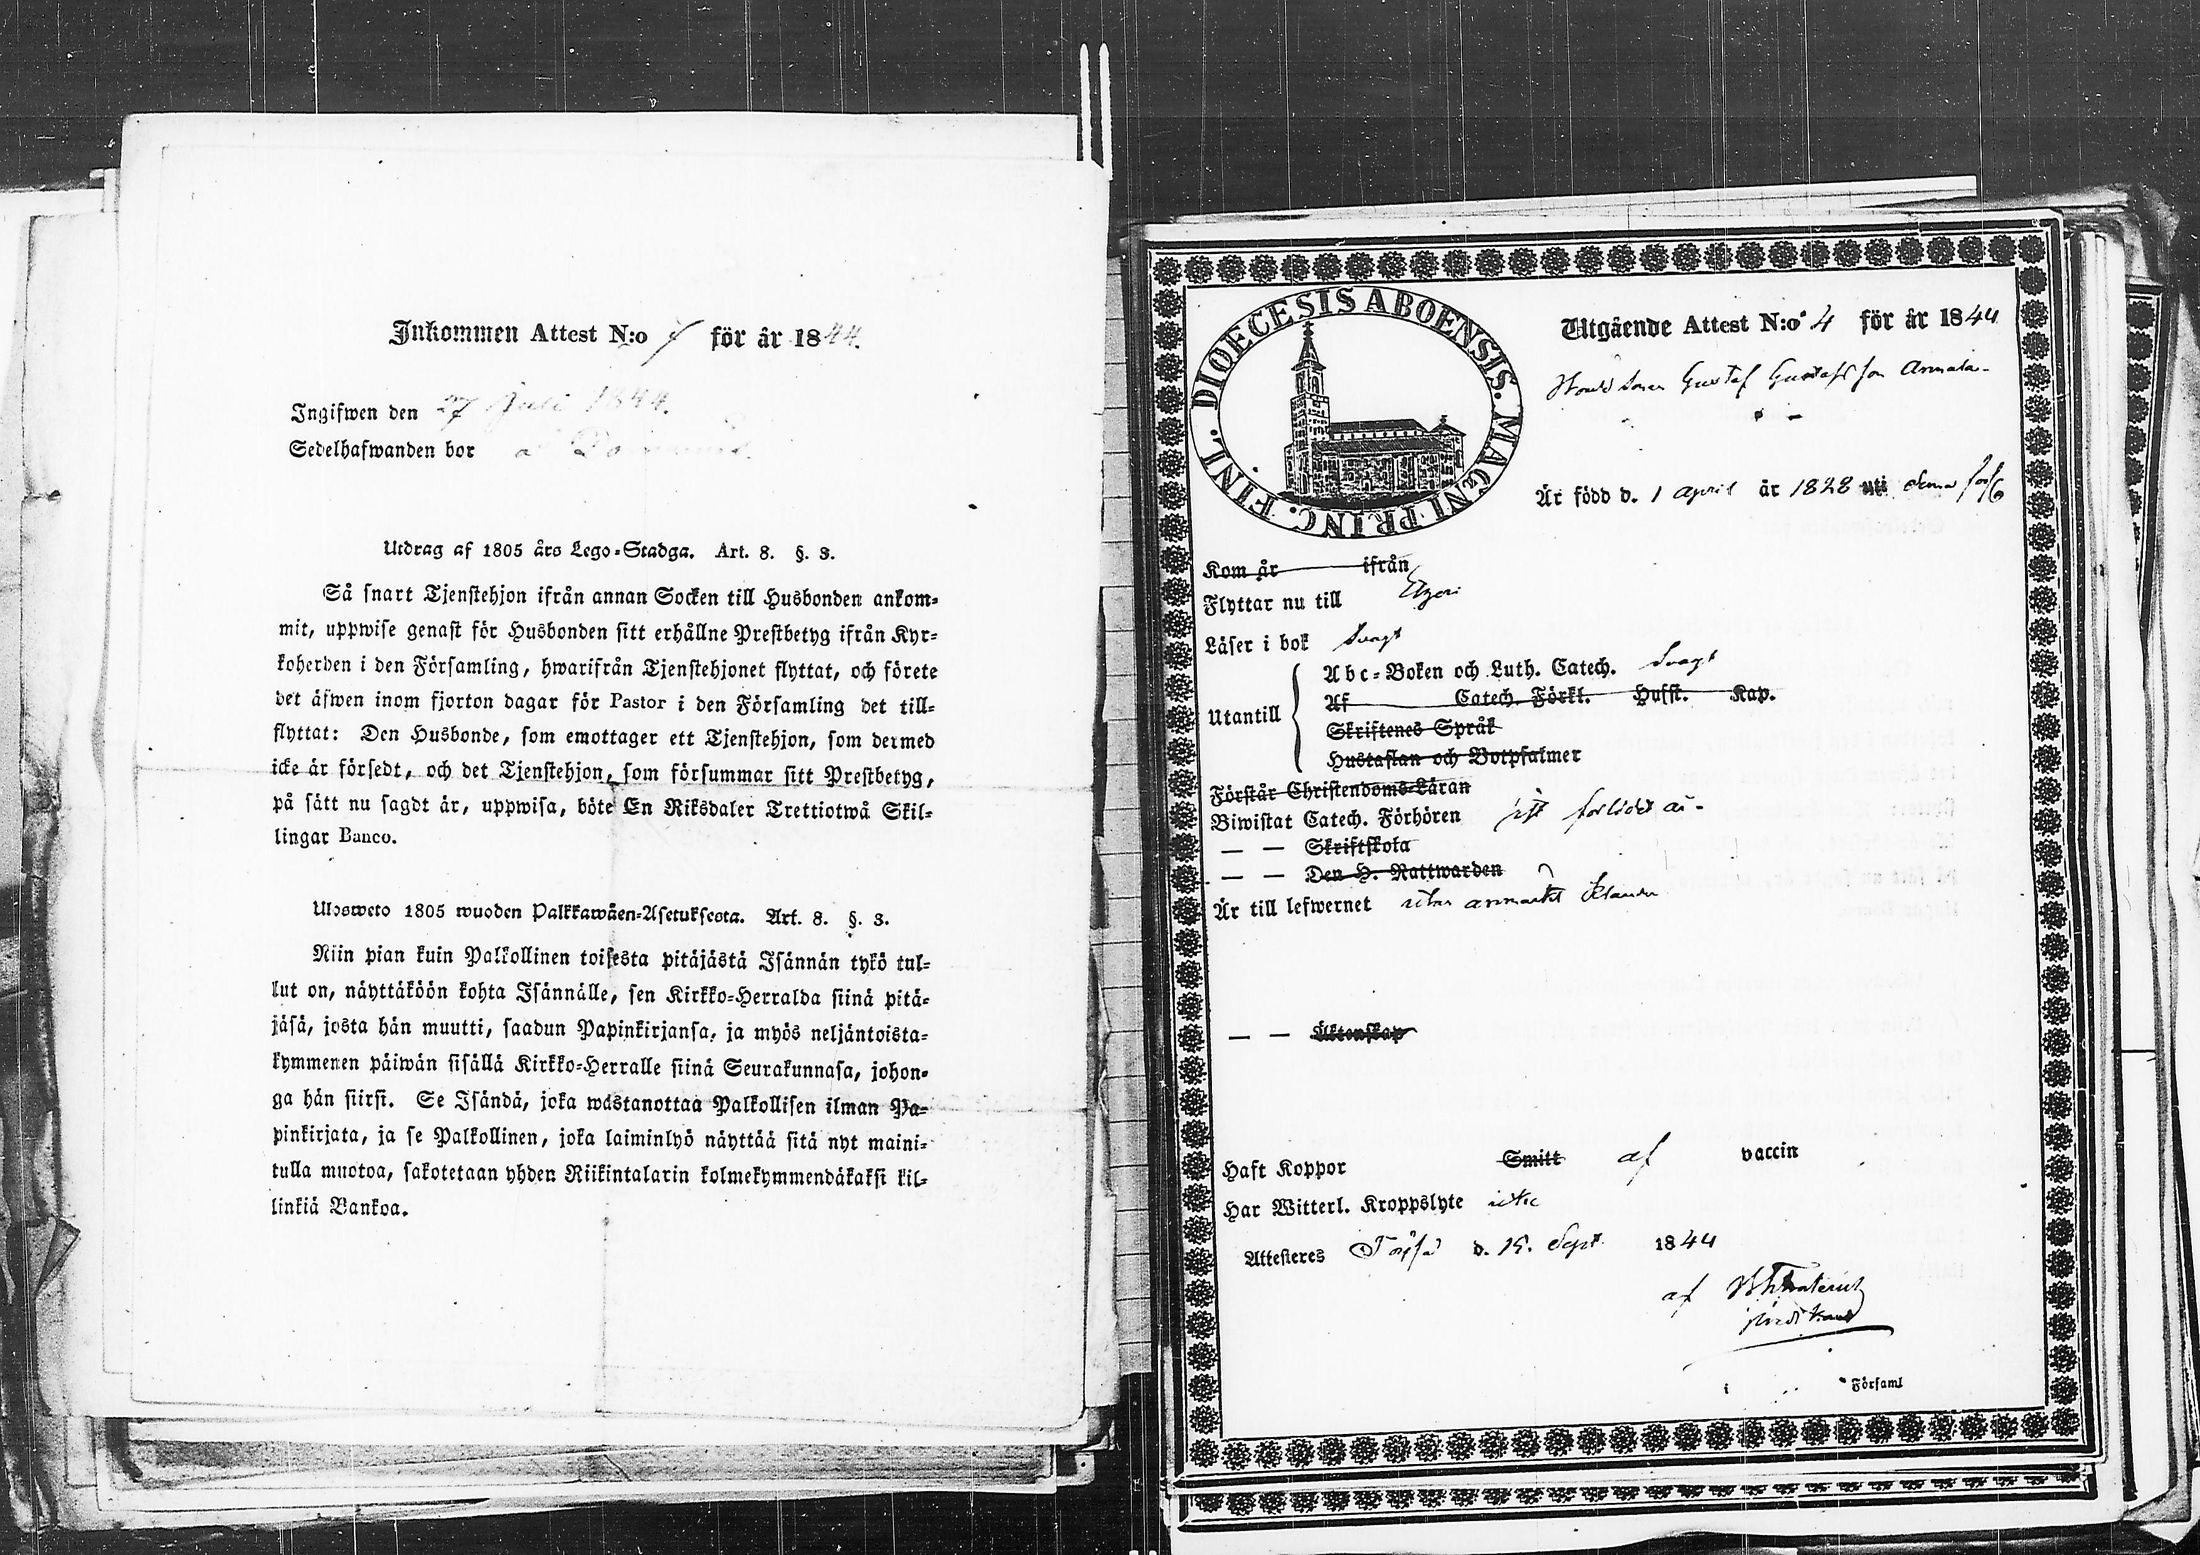 Inkommen Attest N:o 7 för år 1844.
Ingifwen den 27 Juli 1844.
Sedelhafwanden bor
Utdrag af 1805 års Lego-Stadga. Art. 8. §. 3.
Så snart Tjenstehjon ifrån annan Socken till Husbonden ankom-
mit, uppwise genast för Husbonden sitt erhållne Prestbetyg ifrån Kyr-
koherden i den Församling, hwarifrån Tjenstehjonet flyttat, och förete
det äfwen inom fjorton dagar för Pastor i den Församling det till-
flyttat: Den Husbonde, som emottager ett Tjenstehjon, som dermed
icke är försedt, och det Tjenstehjon, som försummar sitt Prestbetyg,
på sätt nu sagdt är, uppwisa, böte En Riksdaler Trettiotwå Skil-
lingar Banco.
Ulosweto 1805 wuoden Palkkawäen-Asetuksesta. Art. 8. §. 3.
Niin pian kuin Palkollinen toisesta pitäjästä Isännän tykö tul-
lut on, näyttäköön kohta Isännälle, sen Kirkko-Herralda siinä pitä-
jäsä, josta hän muutti, saadun Papinkirjansa, ja myös neljäntoista-
kymmenen päiwän sisällä Kirkko-Herralle siinä Seurakunnasa, johon-
ga hän siirsi. Se Isändä, joka wastanottaa Palkollisen ilman Pa-
pinkirjata, ja se Palkollinen, joka laiminlyö näyttää sitä nyt maini-
tulla muotoa, sakotetaan yhden Riikintalarin kolmekymmendäkaksi kil-
linkiä Bankoa.
DIOECESIS ABOENSIS. MAGNI PRINC. FINL.
Utgående Attest N:o 4 för år 1844
Gustaf Gustafsson
Är född d. 1 April år 1828 uti denna förs
Kom år ifrån
Flyttar nu till
Läser i bok svagt
Utantill
Abc-Boken och Luth. Catech. svagt
Af Catech. Förkl. Hufst. Kap.
Skriftenes Språk
Hustaflan och Botpsalmer
Förstår Christendoms-Läran
Biwistat Catech. Förhören sist förlidet år.
— — Skriftskola
— — Den H. Nattwarden
Är till lefwernet utan anmärkt klander
— — Äktenskap
Haft Koppor Smitt af vaccin
Har Witterl. Kroppslyte icke
Attesteres d. 15. Sept. 1844
af
i Församl